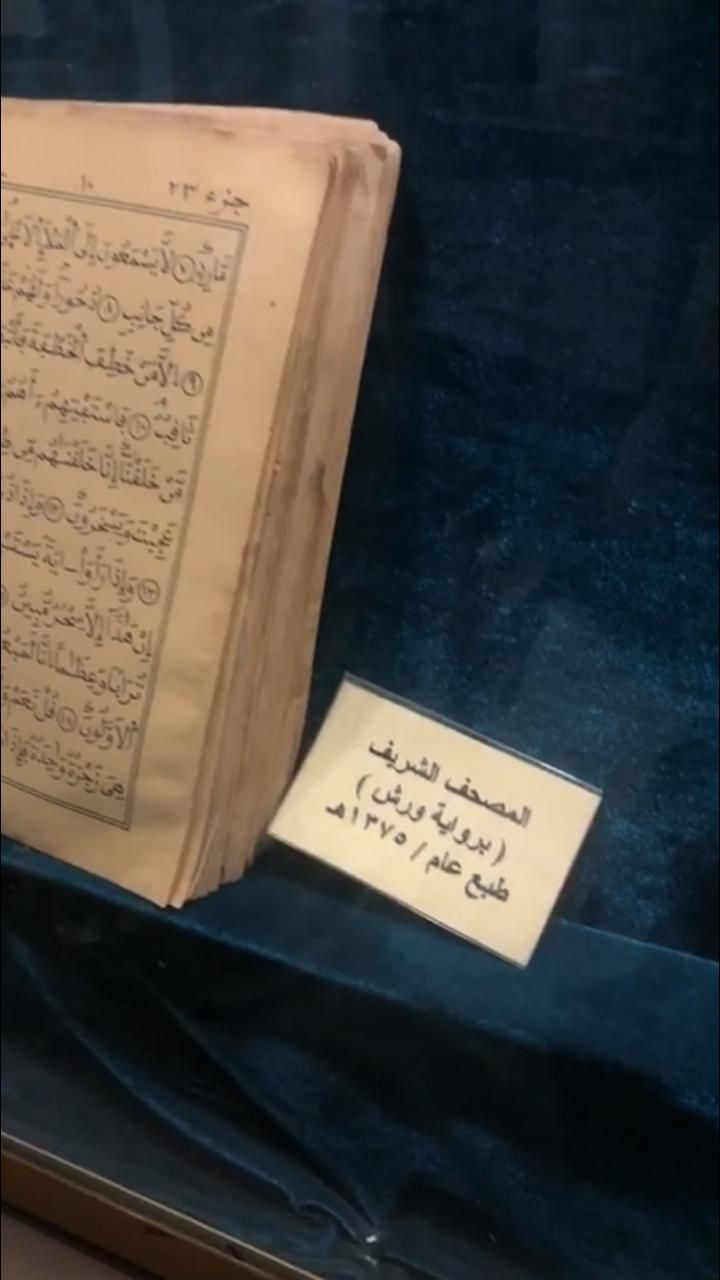 جزء ٢٣ ١٠
مَّارِدٍ ٧ لَّا يَسْمَعُونَ إِلَى ٱلْمَلَإِ ٱلَاعْلَىٰ
مِن كُلِّ جَانِبٍ ٨ دُحُورًا وَلَهُمْ
٩ إِلَّا مَنْ خَطِفَ ٱلْخَطْفَةَ
ثَاقِبٌ ١٠ فَاسْتَفْتِهِمُۥٓ أَهُمُۥٓ
مَّنْ خَلَقْنَآ إِنَّا خَلَقْنَٰهُم مِّن
عَجِبْتَ وَيَسْخَرُونَ ١٢ وَإِذَا
١٣ وَإِذَا رَأَوَاْ ءَايَةً
إِنْ هَٰذَآ إِلَّا سِحْرٌ مُّبِينٌ
تُرَابًا وَعِظَٰمًا اِنَّا
ٱلَاوَّلُونَ ١٧ قُلْ نَعَمْ
هِيَ زَجْرَةٌ وَٰحِدَةٌ
المصحف الشريف
( برواية ورش )
طبع عام / ١٣٧٥هـ